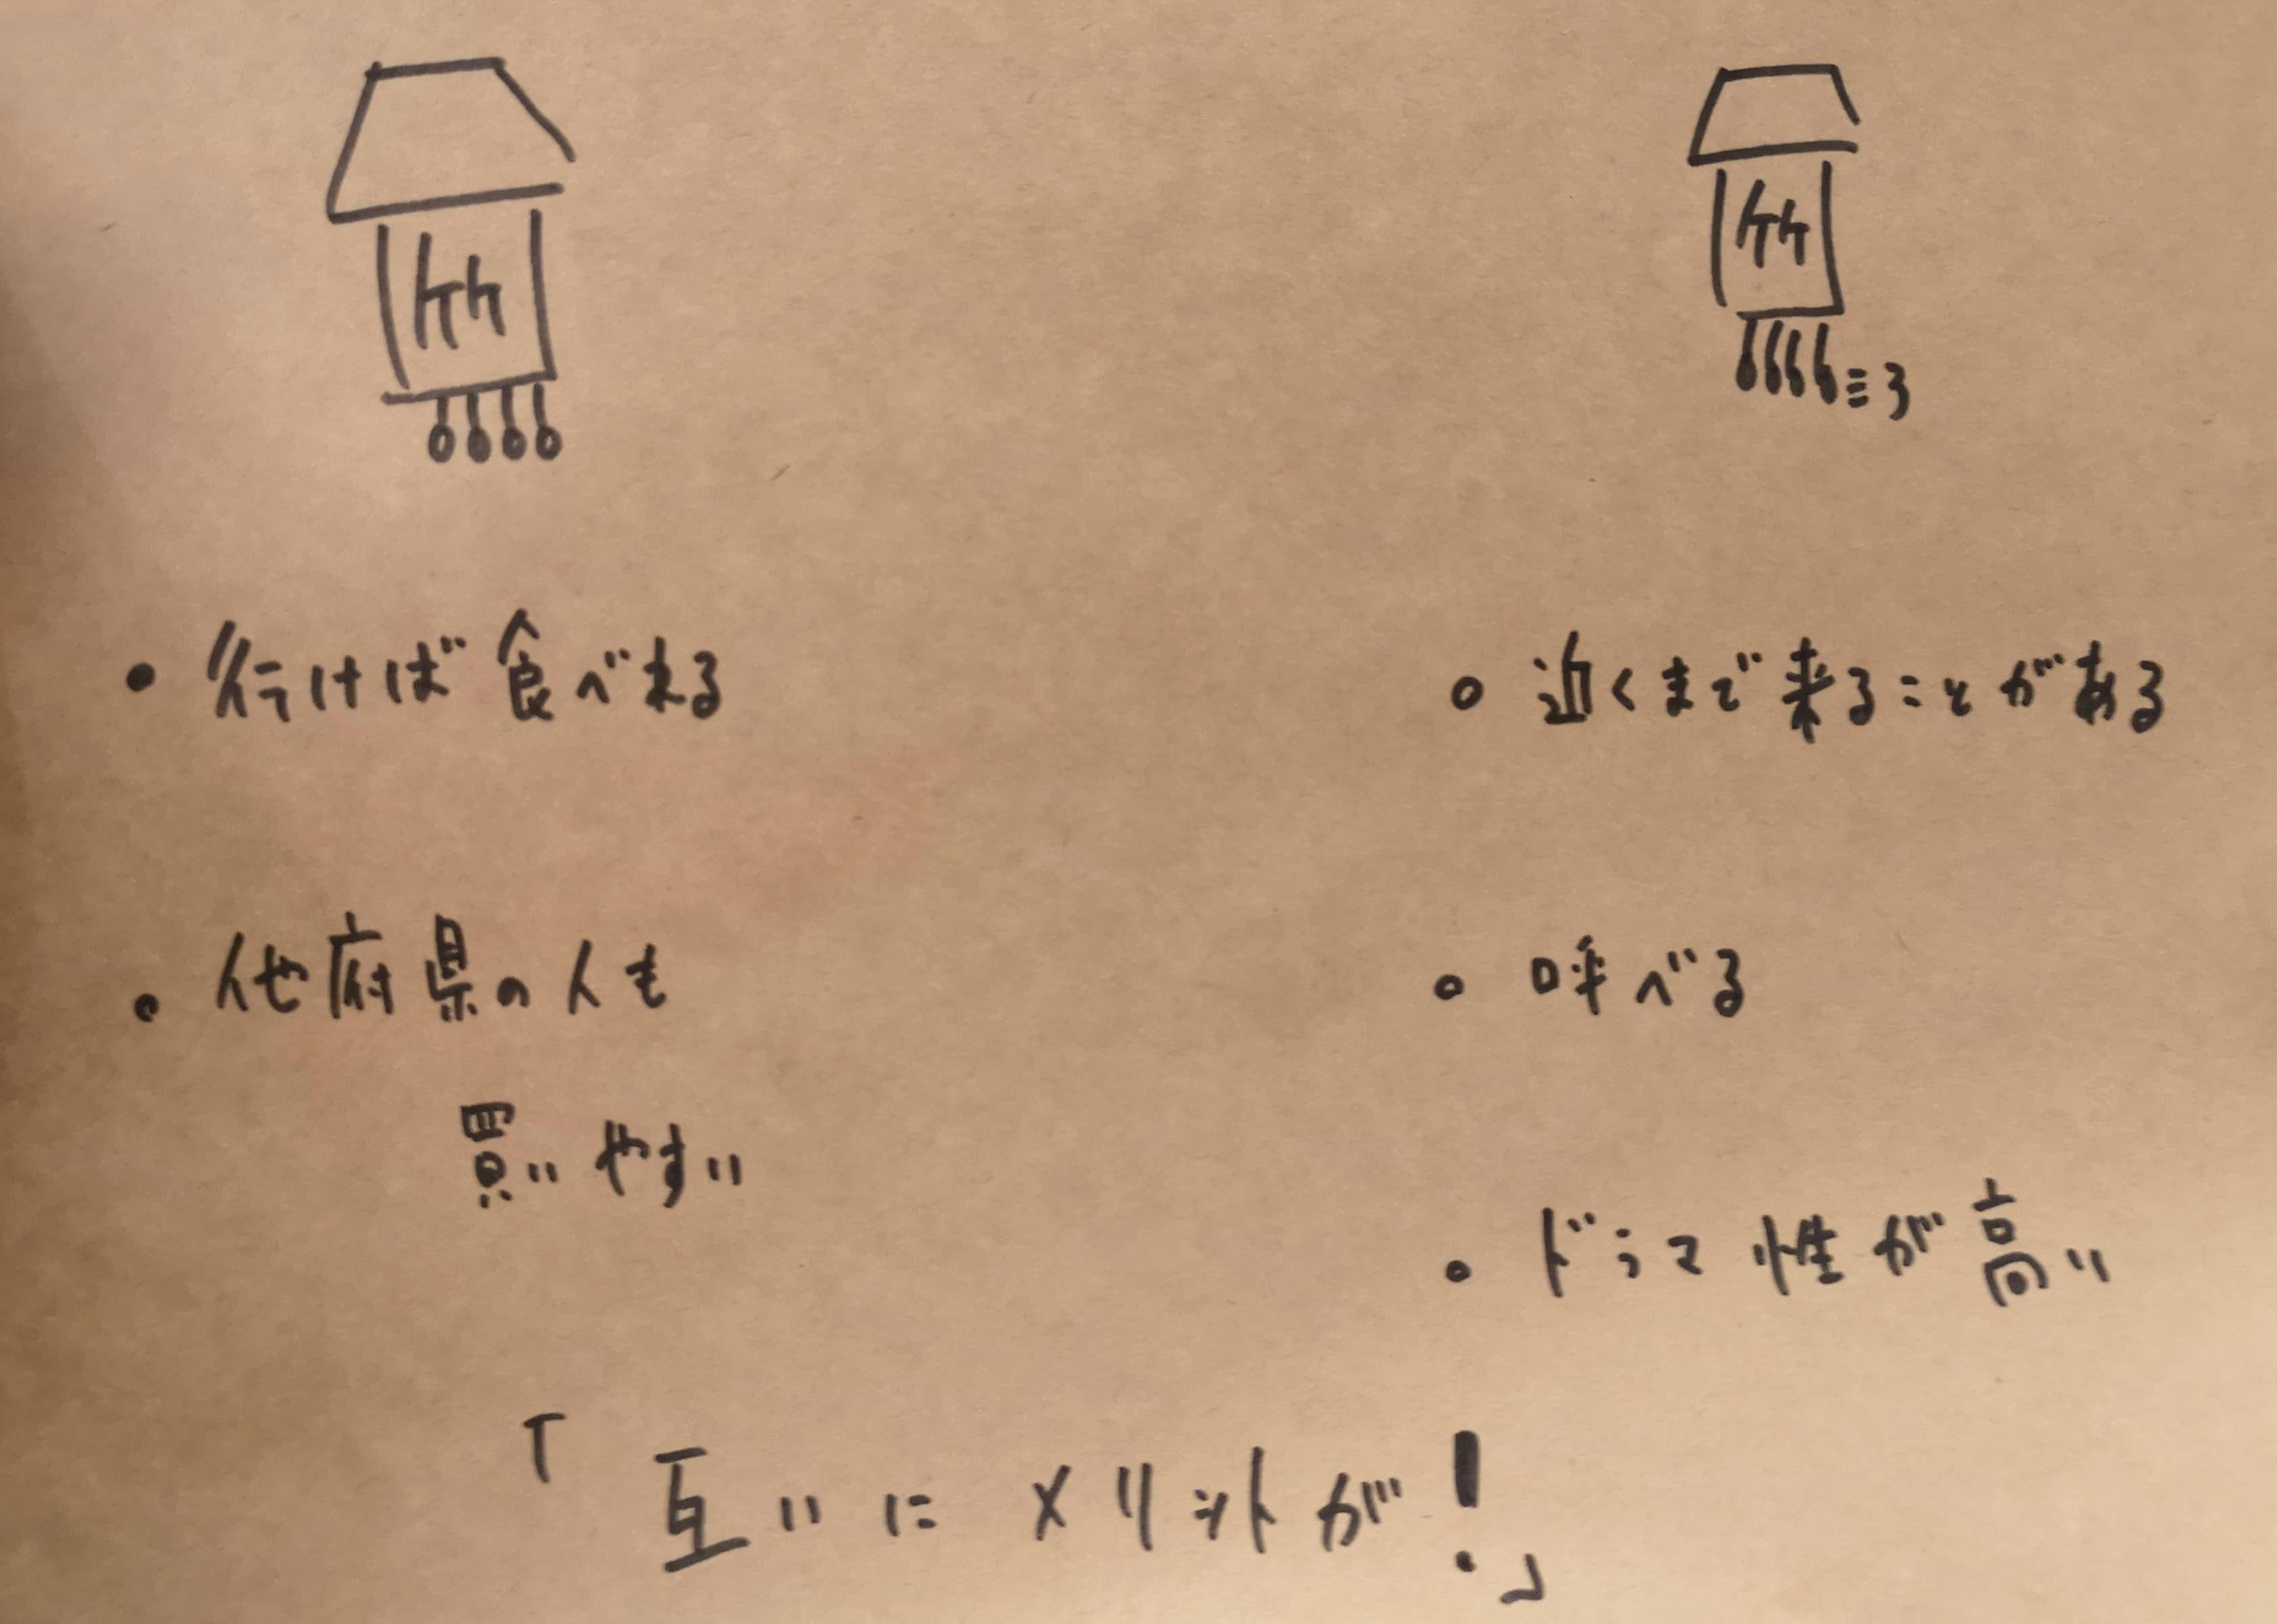 竹
竹
・行けば食べれる
・他府県の人も
買いやすい
・近くまで来ることがある
・呼べる
・ドラマ性が高い
「互いにメリットが!」